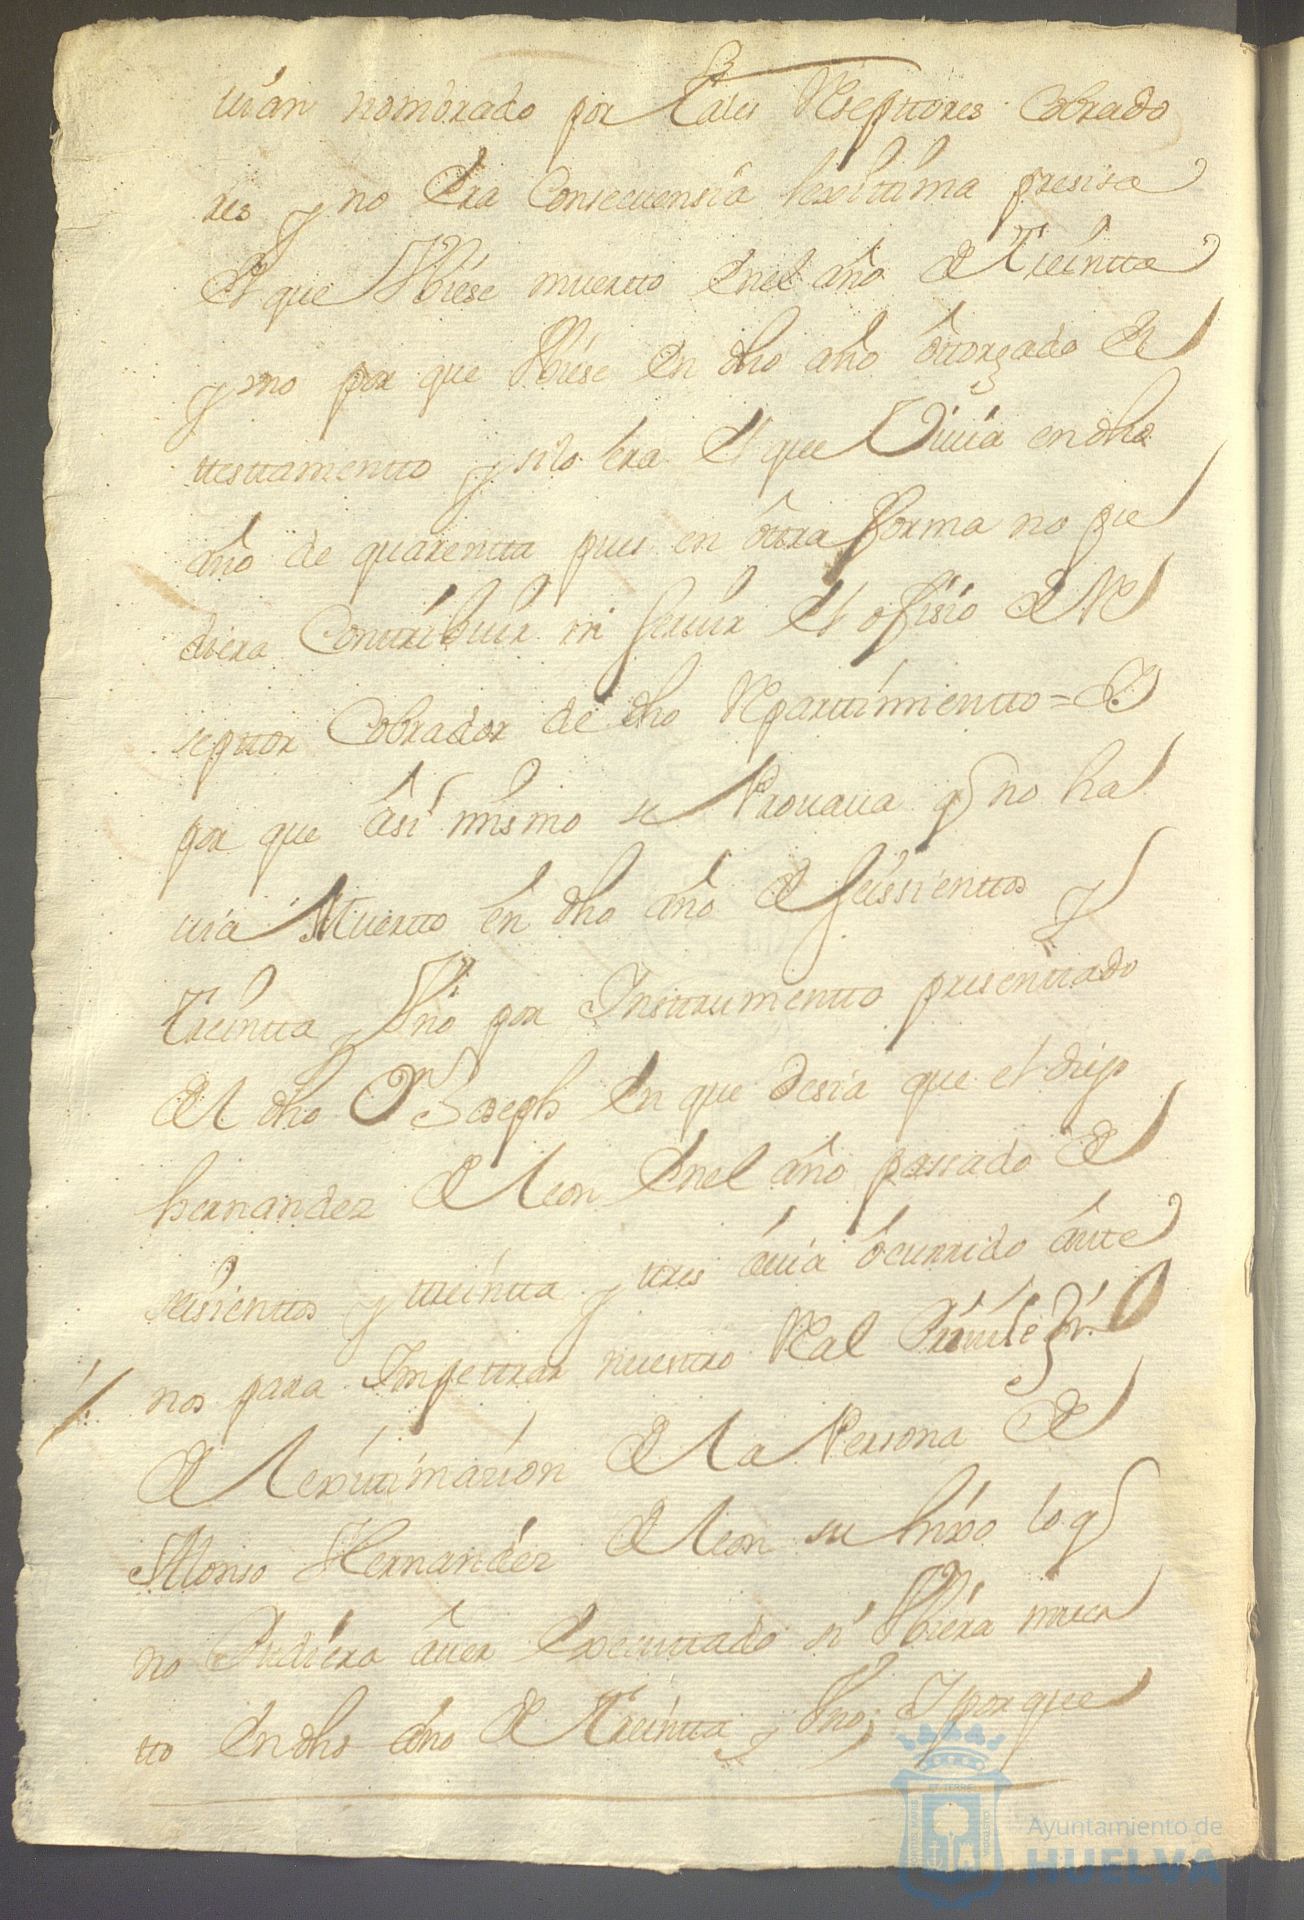 uian nombrado por tales Rseptores Cobrado
res y no era Consecuensia lexitima presisa
el que Vbiese muerto enel año de treintta
y vno por que Vbiese en dho año ôttorgado el
testtamentto y silo era el que Viuia en dho
año de quarentta pues en ôttra forma no pu
diera Conttribuir ni seruir el ofisio de Re
septtor Cobrador de dho Repartimientto = Y
por que âsi mismo se Prouaua q no ha
uia Muertto en dho año de seissienttos y
treintta y Vno por Instrumentto presenttado
del dho Dn Joseph en que desia que el dicho
hernandez de leon enel año passado de
seisienttos y treintta y ttres âuia ôcurrido ânte
nos para Impettrar nuestro Real Priuilexio
de lexittimasion de la Persona de
Alonso Hernandez de leon su hixo lo q
no Pudiera âuer executtado si Vbiera muer
tto en dho año de treintta y Vno; Y porque
Ayuntamiento de
HUELVA